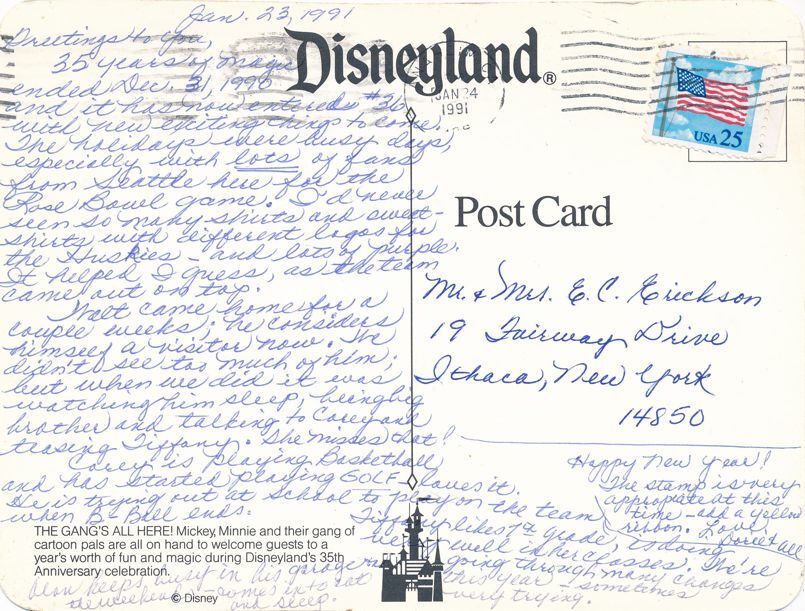 Jan. 23, 1991
Greetings to you,
35 years of magic
ended Dec. 31, 1990
and it has now entered #36
with new exciting things to come.
The holidays were busy days
especially with lots of fans
from Seattle here for the
Rose Bowl game. I'd never
seen so many shirts and sweat-
shirts with different logos for
the Huskies - and lots of purple.
It helped I guess, as the team
came out on top.
Walt came home for a
couple weeks; he considers
himself a visitor now. We
didn't see too much of him;
but when we did it was
watching him sleep, being big
brother and talking to Corey and
teasing Tiffany. She misses that!
Corey is playing Basketball
and has started playing GOLF - loves it.
He is trying out at School to play on the team
when B-Ball ends.
Tiffany likes 7th grade, is doing
well in her classes. We're
going through many changes
this year - sometimes
very trying.
keeps busy in his garage
the weekend - comes in to eat
and sleep.
Disneyland®
JAN 24
1991
USA 25
Post Card
Mr. & Mrs. E. C. Erickson
19 Fairway Drive
Ithaca, New York
14850
Happy New Year!
The stamp is very
appropate at this
time - add a yellow
ribbon. Love,
& all
THE GANG'S ALL HERE! Mickey, Minnie and their gang of
cartoon pals are all on hand to welcome guests to a
year's worth of fun and magic during Disneyland's 35th
Anniversary celebration.
© Disney